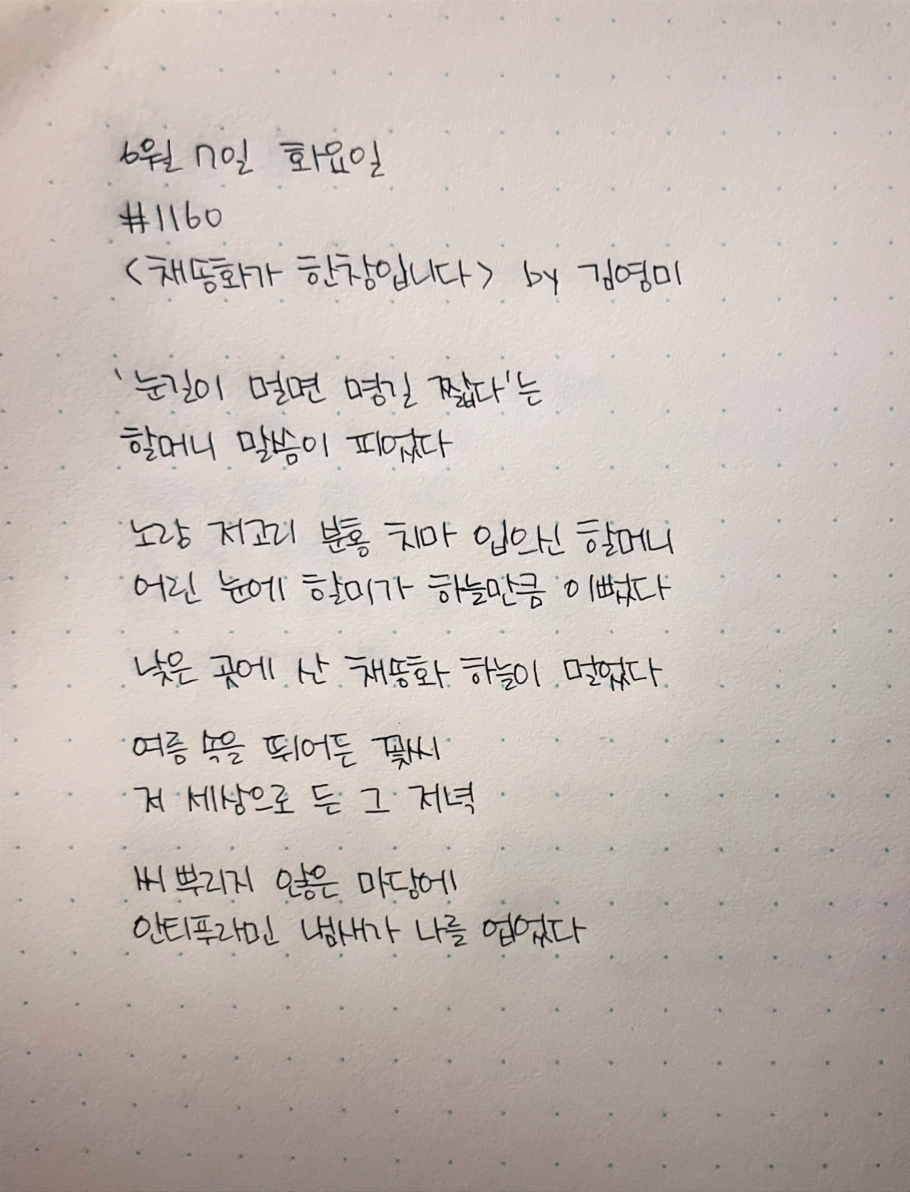 6월 7일 화요일
#1160
<채송화가 한창입니다> by 김영미
'눈길이 멀면 명길 짧다'는
할머니 말씀이 피었다
노랑 저고리 분홍 치마 입으신 할머니
어린 눈에 할미가 하늘만큼 이뻤다
낮은 곳에 산 채송화 하늘이 멀었다
여름 속을 뛰어든 꽃씨
저 세상으로 든 그 저녁
씨 뿌리지 않은 마당에
안티푸라민 냄새가 나를 업었다